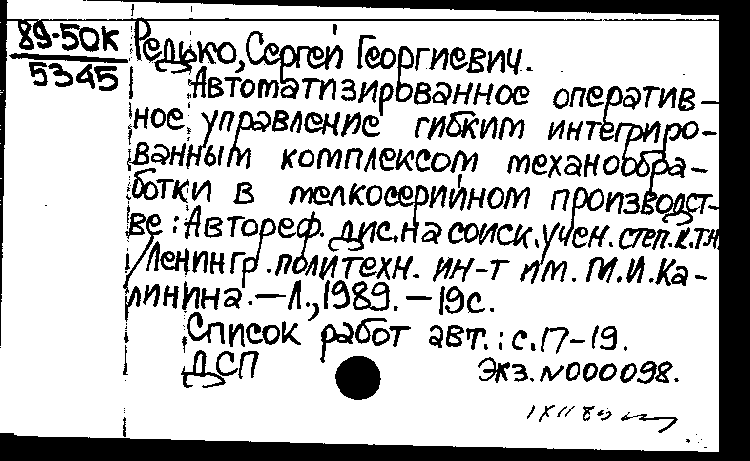 89-50К
5345
Редько, Сергей Георгиевич.
Автоматизированное оператив-
ное управление гибким интегриро-
ванным комплексом механообра-
ботки в мелкосерийном производст-
ве: Автореф. дис. на соиск. учен. степ. к.т.н.
/Ленингр. политехн. ин-т им. М.И.Ка-
линина. — Л., 1989. — 19с.
Список работ авт.: с.17-19.
ДСП
Экз. N000098.